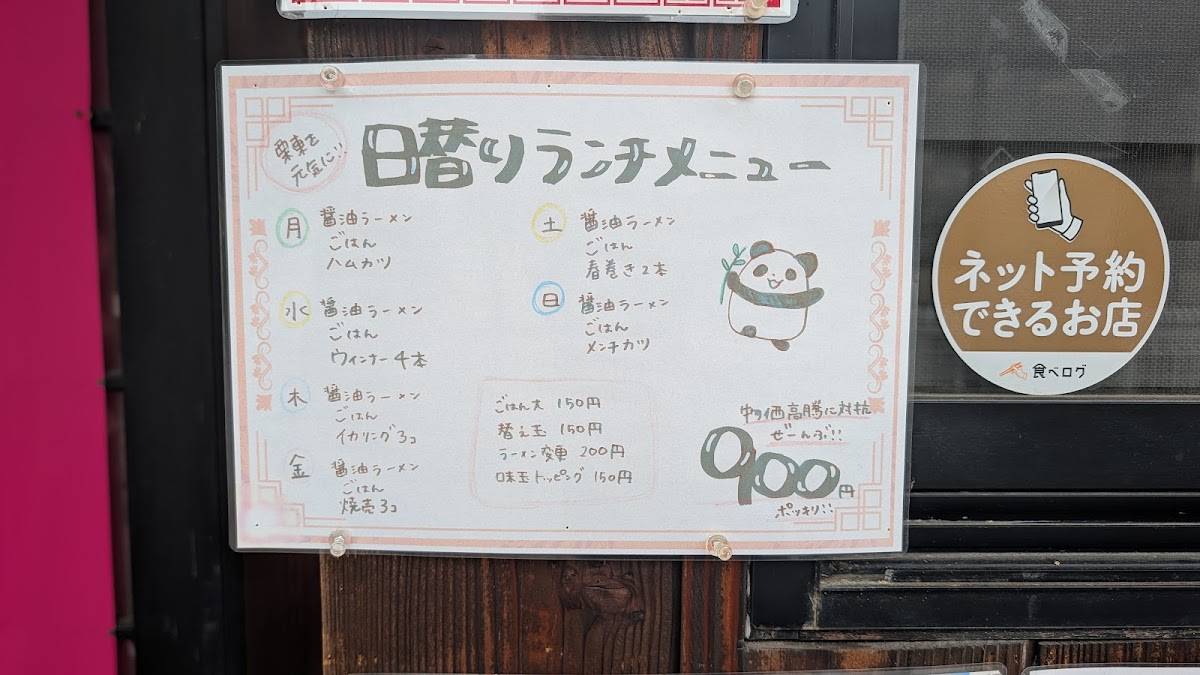 栗東を
元気に!!
日替りランチメニュー
月 醤油ラーメン
ごはん
ハムカツ
水 醤油ラーメン
ごはん
ウィンナー4本
木 醤油ラーメン
ごはん
イカリング3コ
金 醤油ラーメン
ごはん
焼売3コ
土 醤油ラーメン
ごはん
春巻き2本
日 醤油ラーメン
ごはん
メンチカツ
ごはん大 150円
替え玉 150円
ラーメン変更 200円
味玉トッピング 150円
物価高騰に対抗
ぜーんぶ!!
900円
ポッキリ!!
ネット予約
できるお店
食べログ